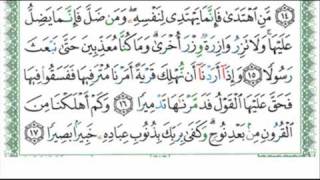 مَّنِ ٱهْتَدَىٰ فَإِنَّمَا يَهْتَدِى لِنَفْسِهِۦ ۖ وَمَن ضَلَّ فَإِنَّمَا يَضِلُّ ١٤
عَلَيْهَا ۚ وَلَا تَزِرُ وَازِرَةٌ وِزْرَ أُخْرَىٰ ۗ وَمَا كُنَّا مُعَذِّبِينَ حَتَّىٰ نَبْعَثَ
رَسُولًا ١٥ وَإِذَآ أَرَدْنَآ أَن نُّهْلِكَ قَرْيَةً أَمَرْنَا مُتْرَفِيهَا فَفَسَقُوا۟ فِيهَا
فَحَقَّ عَلَيْهَا ٱلْقَوْلُ فَدَمَّرْنَٰهَا تَدْمِيرًا ١٦ وَكَمْ أَهْلَكْنَا مِنَ
ٱلْقُرُونِ مِنۢ بَعْدِ نُوحٍ ۗ وَكَفَىٰ بِرَبِّكَ بِذُنُوبِ عِبَادِهِۦ خَبِيرًۢا بَصِيرًا ١٧